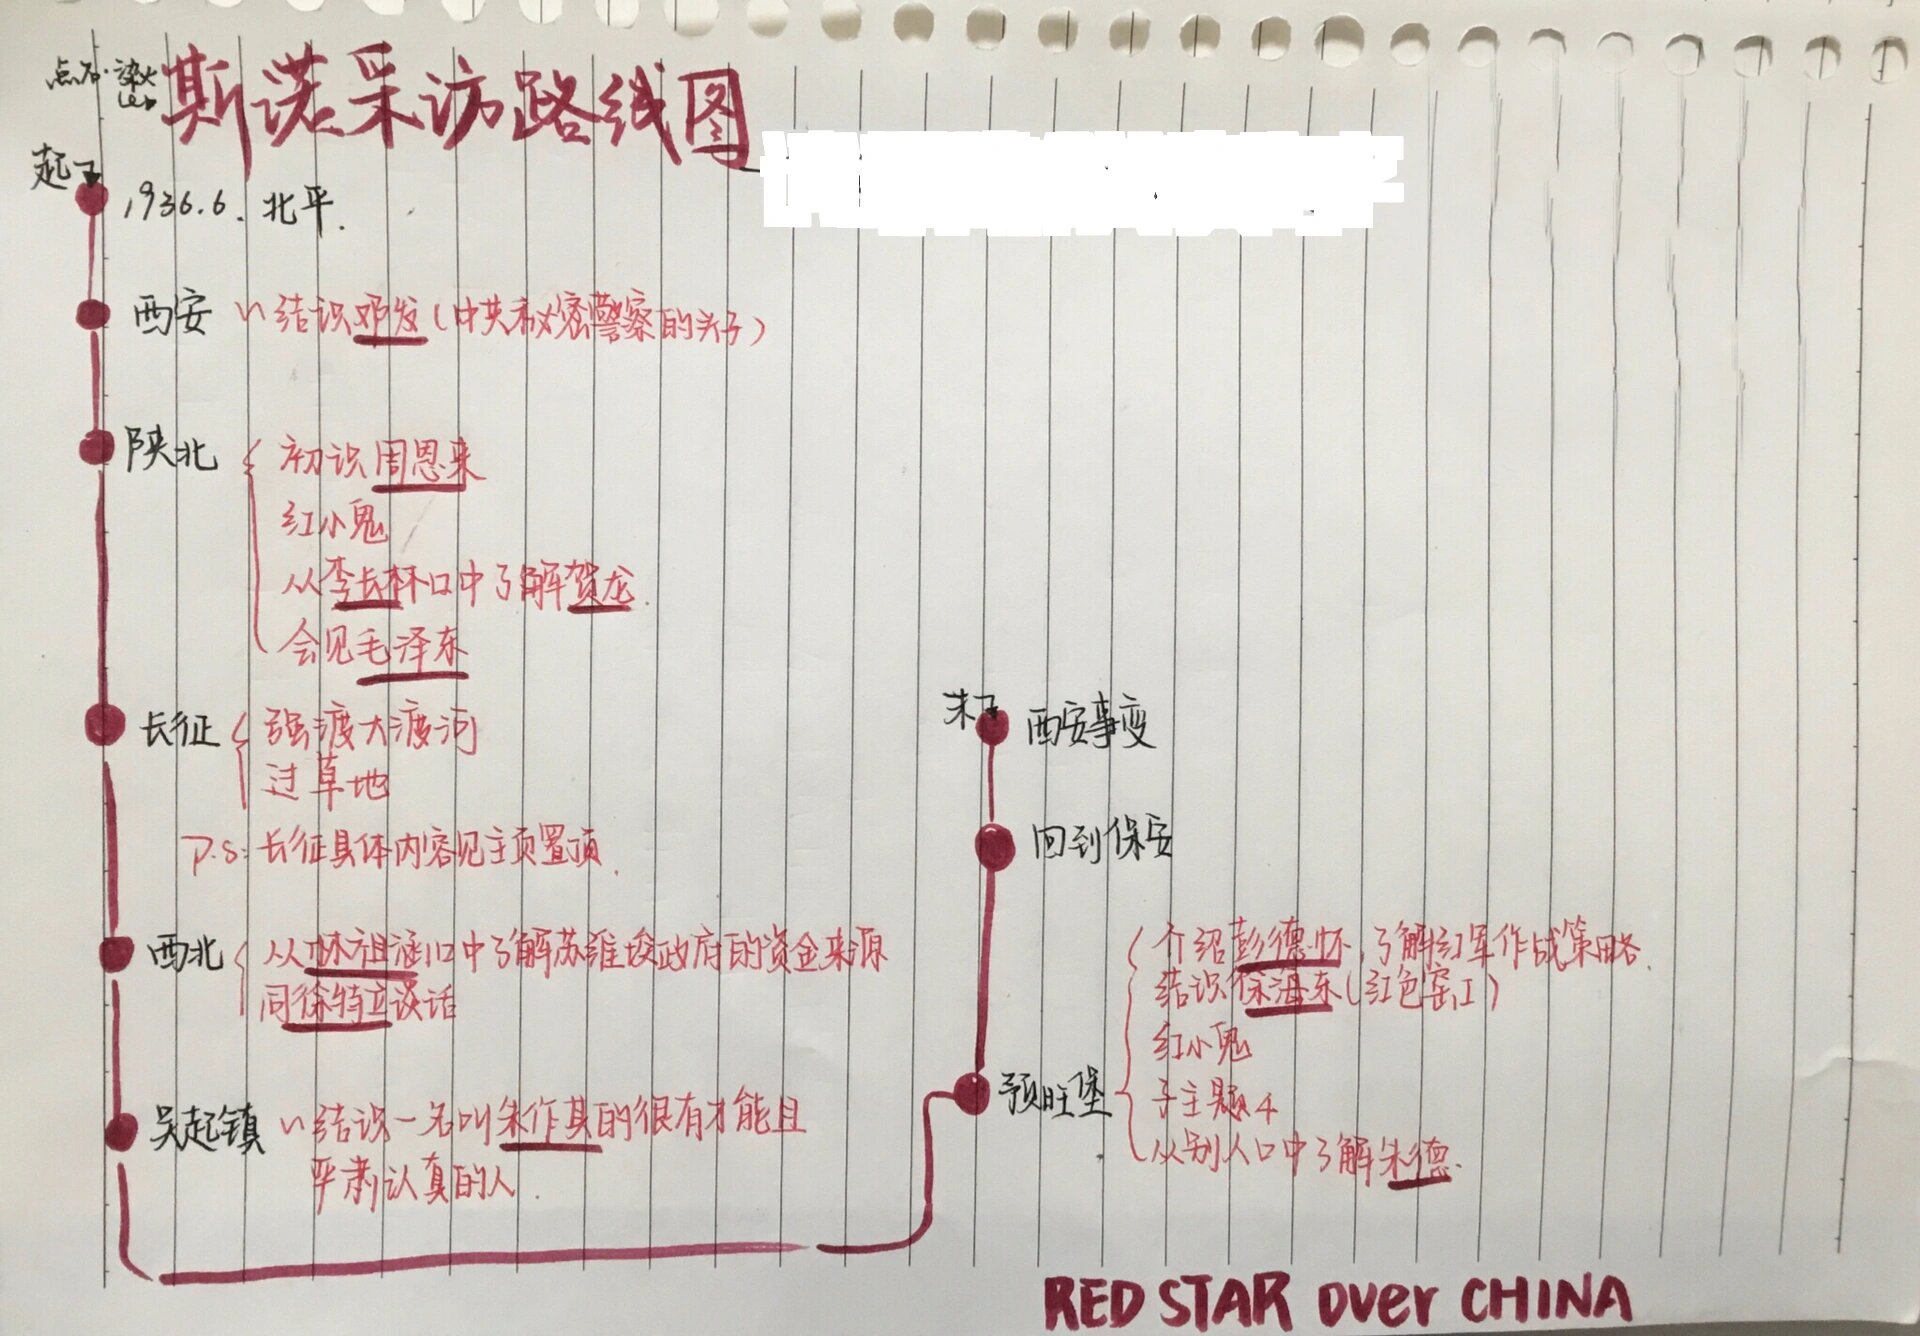 斯诺采访路线图
起
1936.6. 北平.
西安 结识邓发(中共秘密警察的头子)
陕北
初识周恩来
红小鬼
从李长林口中了解贺龙.
会见毛泽东
长征
强渡大渡河
过草地
P.S: 长征具体内容见主页置顶.
西北
从林祖涵口中了解苏维埃政府的资金来源
同徐特立谈话
吴起镇 结识一名叫朱作其的很有才能且
严肃认真的人.
末
西安事变
回到保安
预旺堡
介绍彭德怀,了解红军作战策略.
结识徐海东(红色窑工)
红小鬼
子主题4
从别人口中了解朱德.
RED STAR over CHINA